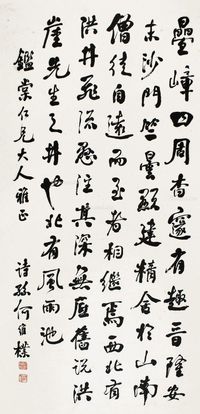 疊嶂四周杳邃有趣晉隆安
末沙門竺曇顯建精舍於山南
僧徒自遠而至者相繼焉西北有
洪井飛流懸注其深無底舊說洪
崖先生之井也北有風雨池
鑑棠仁兄大人雅正
詩孫何維樸